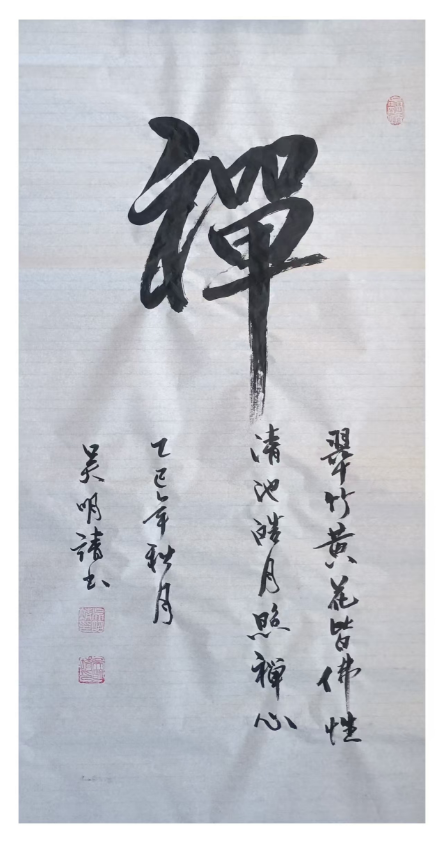 禪
翠竹黄花皆佛性
清池皓月照禪心
乙巳年秋月
吴明清书